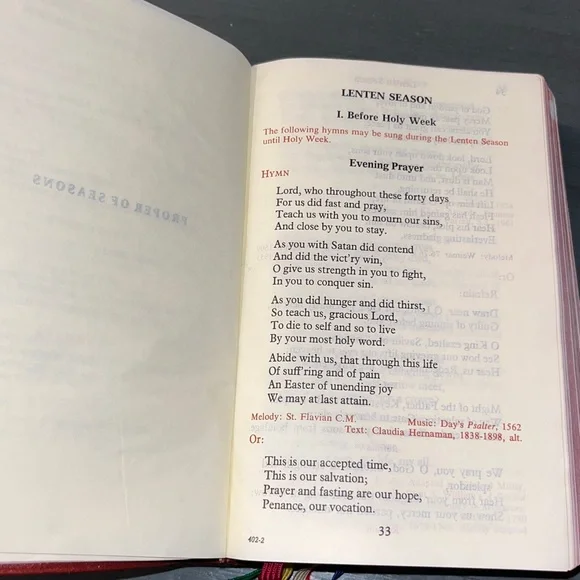 PROPER OF SEASONS
LENTEN SEASON
I. Before Holy Week
The following hymns may be sung during the Lenten Season
until Holy Week.
Evening Prayer
HYMN
Lord, who throughout these forty days
For us did fast and pray,
Teach us with you to mourn our sins,
And close by you to stay.
As you with Satan did contend
And did the vict'ry win,
O give us strength in you to fight,
In you to conquer sin.
As you did hunger and did thirst,
So teach us, gracious Lord,
To die to self and so to live
By your most holy word.
Abide with us, that through this life
Of suff'ring and of pain
An Easter of unending joy
We may at last attain.
Melody: St. Flavian C.M. Music: Day's Psalter, 1562
Text: Claudia Hernaman, 1838-1898, alt.
Or:
This is our accepted time,
This is our salvation;
Prayer and fasting are our hope,
Penance, our vocation.
33
402-2